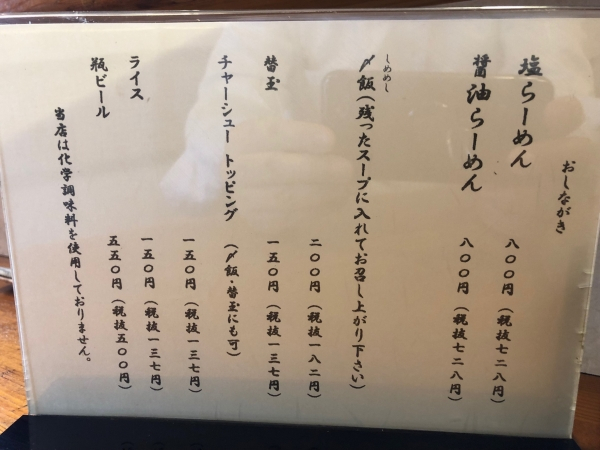 おしながき
塩らーめん 八〇〇円（税抜七二八円）
醤油らーめん 八〇〇円（税抜七二八円）
しめめし
〆飯（残ったスープに入れてお召し上がり下さい）
二〇〇円（税抜一八二円）
替玉 一五〇円（税抜一三七円）
チャーシュートッピング（〆飯・替玉にも可）
一五〇円（税抜一三七円）
ライス 一五〇円（税抜一三七円）
瓶ビール 五五〇円（税抜五〇〇円）
当店は化学調味料を使用しておりません。